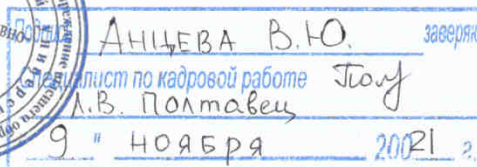 Подпись АНЦЕВА В.Ю. заверяю
Специалист по кадровой работе
Л.В. Полтавец
9 " НОЯБРЯ 20021 г.